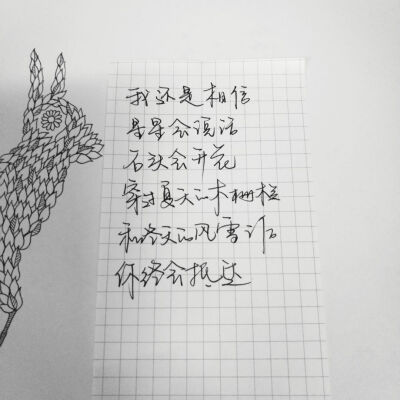 我还是相信
星星会说话
石头会开花
穿过夏天的木栅栏
和冬天的风雪后
你终会抵达